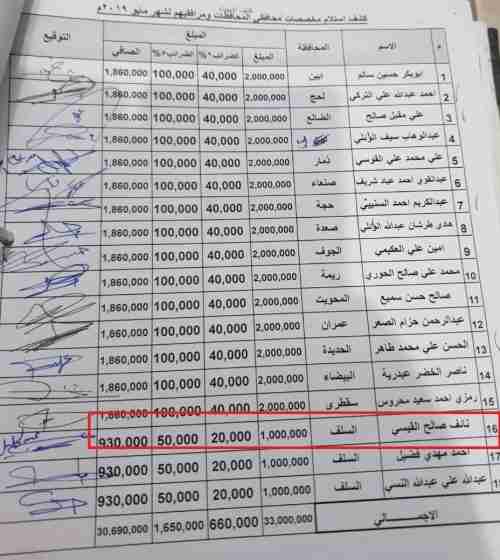 كشف استلام مخصصات محافظي المحافظات ومرافقيهم لشهر مايو ٢٠١٩م
م الاسم المحافظة المبلغ التوقيع
المبلغ الضرائب الضرائب٥% الصافي
1 ابوبكر حسين سالم ابين 2,000,000 40,000 100,000 1,860,000
2 احمد عبدالله علي التركي لحج 2,000,000 40,000 100,000 1,860,000
3 علي مقبل صالح الضالع 2,000,000 40,000 100,000 1,860,000
4 عبدالوهاب سيف الوائلي 2,000,000 40,000 100,000 1,860,000
5 علي محمد علي القوسي ذمار 2,000,000 40,000 100,000 1,860,000
6 عبدالقوي احمد عباد شريف صنعاء 2,000,000 40,000 100,000 1,860,000
7 عبدالكريم احمد السنيني حجة 2,000,000 40,000 100,000 1,860,000
8 هادي طرشان عبدالله الوائلي صعدة 2,000,000 40,000 100,000 1,860,000
9 امين علي العكيمي الجوف 2,000,000 40,000 100,000 1,860,000
10 محمد علي صالح الحوري ريمة 2,000,000 40,000 100,000 1,860,000
11 صالح حسن سميع المحويت 2,000,000 40,000 100,000 1,860,000
12 عبدالرحمن حزام الصعر عمران 2,000,000 40,000 100,000 1,860,000
13 الحسن علي محمد طاهر الحديدة 2,000,000 40,000 100,000 1,860,000
14 ناصر الخضر عيدربة البيضاء 2,000,000 40,000 100,000 1,860,000
15 رمزي احمد سعيد محروس سقطرى 2,000,000 40,000 100,000 1,860,000
16 نائف صالح القيسي السلف 1,000,000 20,000 50,000 930,000
17 احمد مهدي فضيل السلف 1,000,000 20,000 50,000 930,000
عبدالله علي عبدالله النسي السلف 1,000,000 20,000 50,000 930,000
الاجمــــالي 33,000,000 660,000 1,650,000 30,690,000